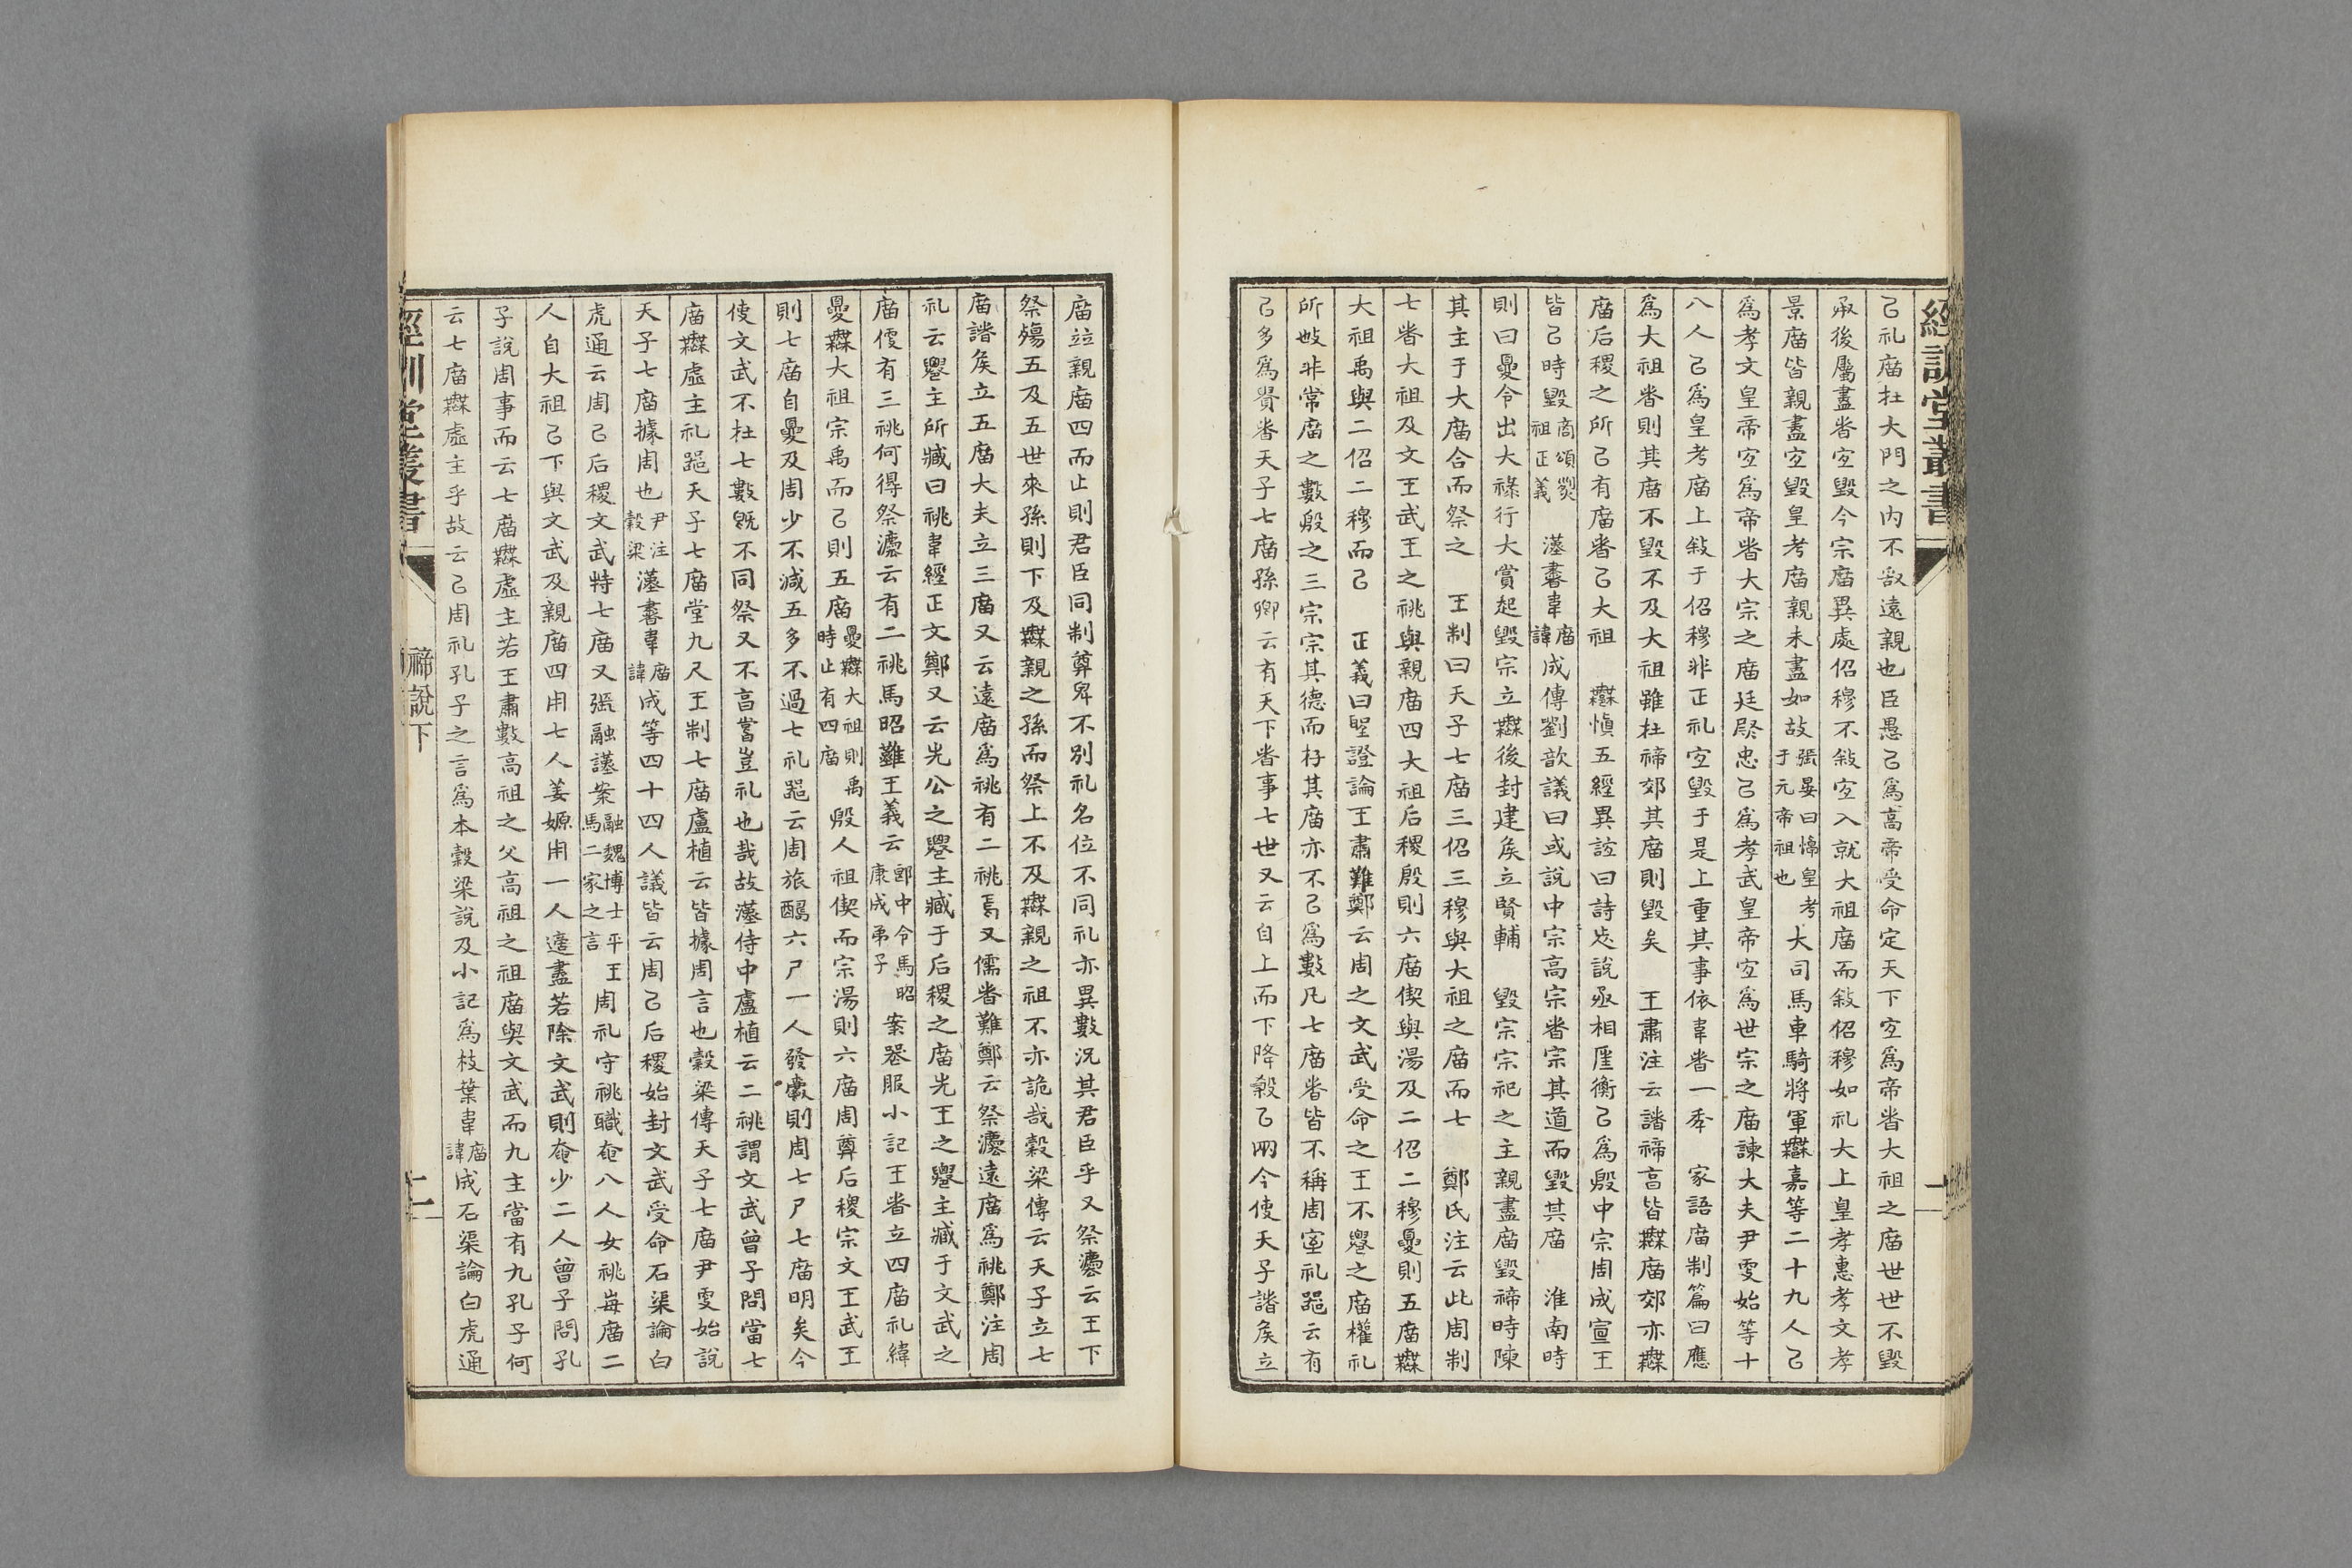 經訓堂叢書
己礼庿在大門之内不敢遠親也臣愚己爲高帝受命定天下宐爲帝者大祖之庿世世不毀
承後屬盡者宐毀今宗庿異處佋穆不敍宐入就大祖庿而敍佋穆如礼大上皇孝惠孝文孝
景庿皆親盡宐毀皇考庿親未盡如故張晏曰悼皇考于元帝祖也大司馬車騎將軍䉪嘉等二十九人己
爲孝文皇帝宐爲帝者大宗之庿廷尉忠己爲孝武皇帝宐爲世宗之庿諫大夫尹更始等十
八人己爲皇考庿上敍于佋穆非正礼宐毀于是上重其事依韋者一秊 家語庿制篇曰應
爲大祖者則其庿不毀不及大祖雖在禘郊其庿則毀矣 王肅注云諸禘享皆無庿郊亦無
庿后稷之所己有庿者己大祖 許愼五經異誼曰詩魯說丞相匡衡己爲殷中宗周成宣王
皆己時毀商頌烈祖正義 漢書韋庿諱成傳劉歆議曰或說中宗高宗者宗其道而毀其庿 淮南時
則曰夏令出大祿行大賞起毀宗立無後封建矦立賢輔 毀宗宗祀之主親盡庿毀禘時陳
其主于大庿合而祭之 王制曰天子七庿三佋三穆與大祖之庿而七 鄭氏注云此周制
七者大祖及文王武王之祧與親庿四大祖后稷殷則六庿偰與湯及二佋二穆夏則五庿無
大祖禹與二佋二穆而己 正義曰聖證論王肅難鄭云周之文武受命之王不遷之庿權礼
所攽非常庿之數殷之三宗宗其德而存其庿亦不己爲數凡七庿者皆不稱周室礼器云有
己多爲貴者天子七庿孫卿云有天下者事七世又云自上而下降殺己兩今使天子諸矦立
庿竝親庿四而止則君臣同制尊卑不別礼名位不同礼亦異數況其君臣乎又祭灋云王下
祭殤五及五世來孫則下及無親之孫而祭上不及無親之祖不亦詭哉穀梁傳云天子立七
庿諸矦立五庿大夫立三庿又云遠庿爲祧有二祧焉又儒者難鄭云祭灋遠庿爲祧鄭注周
礼云遷主所臧曰祧韋經正文鄭又云先公之遷主臧于后稷之庿先王之遷主臧于文武之
庿便有三祧何得祭灋云有二祧馬昭難王義云郎中令馬昭康成弟子案器服小記王者立四庿礼緯
夏無大祖宗禹而己則五庿夏無大祖則禹時止有四庿殷人祖偰而宗湯則六庿周尊后稷宗文王武王
則七庿自夏及周少不減五多不過七礼器云周旅醻六尸一人發爵則周七尸七庿明矣今
使文武不在七數既不同祭又不享嘗豈礼也哉故漢侍中盧植云二祧謂文武曾子問當七
庿無虛主礼器天子七庿堂九尺王制七庿盧植云皆據周言也穀梁傳天子七庿尹更始說
天子七庿據周也尹注穀梁漢書韋庿諱成等四十四人議皆云周己后稷始封文武受命石渠論白
虎通云周己后稷文武特七庿又張融謹案融魏博士平王馬二家之言周礼守祧職奄八人女祧每庿二
人自大祖己下與文武及親庿四用七人姜嫄用一人適盡若除文武則奄少二人曾子問孔
子說周事而云七庿無虛主若王肅數高祖之父高祖之祖庿與文武而九主當有九孔子何
云七庿無虛主乎故云己周礼孔子之言爲本穀梁說及小記爲枝葉韋庿諱成石渠論白虎通
經訓堂叢書
禘說下